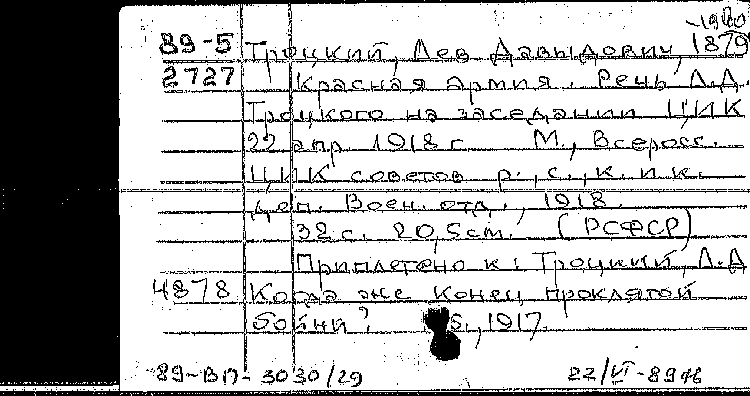 -1940
89-5 Троцкий, Лев Давыдович, 1879
2727 Красная армия. Речь Л.Д.
Троцкого на заседании ЦИК
22 апр 1918 г. М., Всеросс.
ЦИК советов р., с., к. и к.
деп. Воен. отд., 1918.
32 с. 20,5 см. (РСФСР)
Приплетено к: Троцкий, Л.Д
4878 Когда же конец проклятой
бойни? 1917.
89-ВП-3030/29 22/VI-89